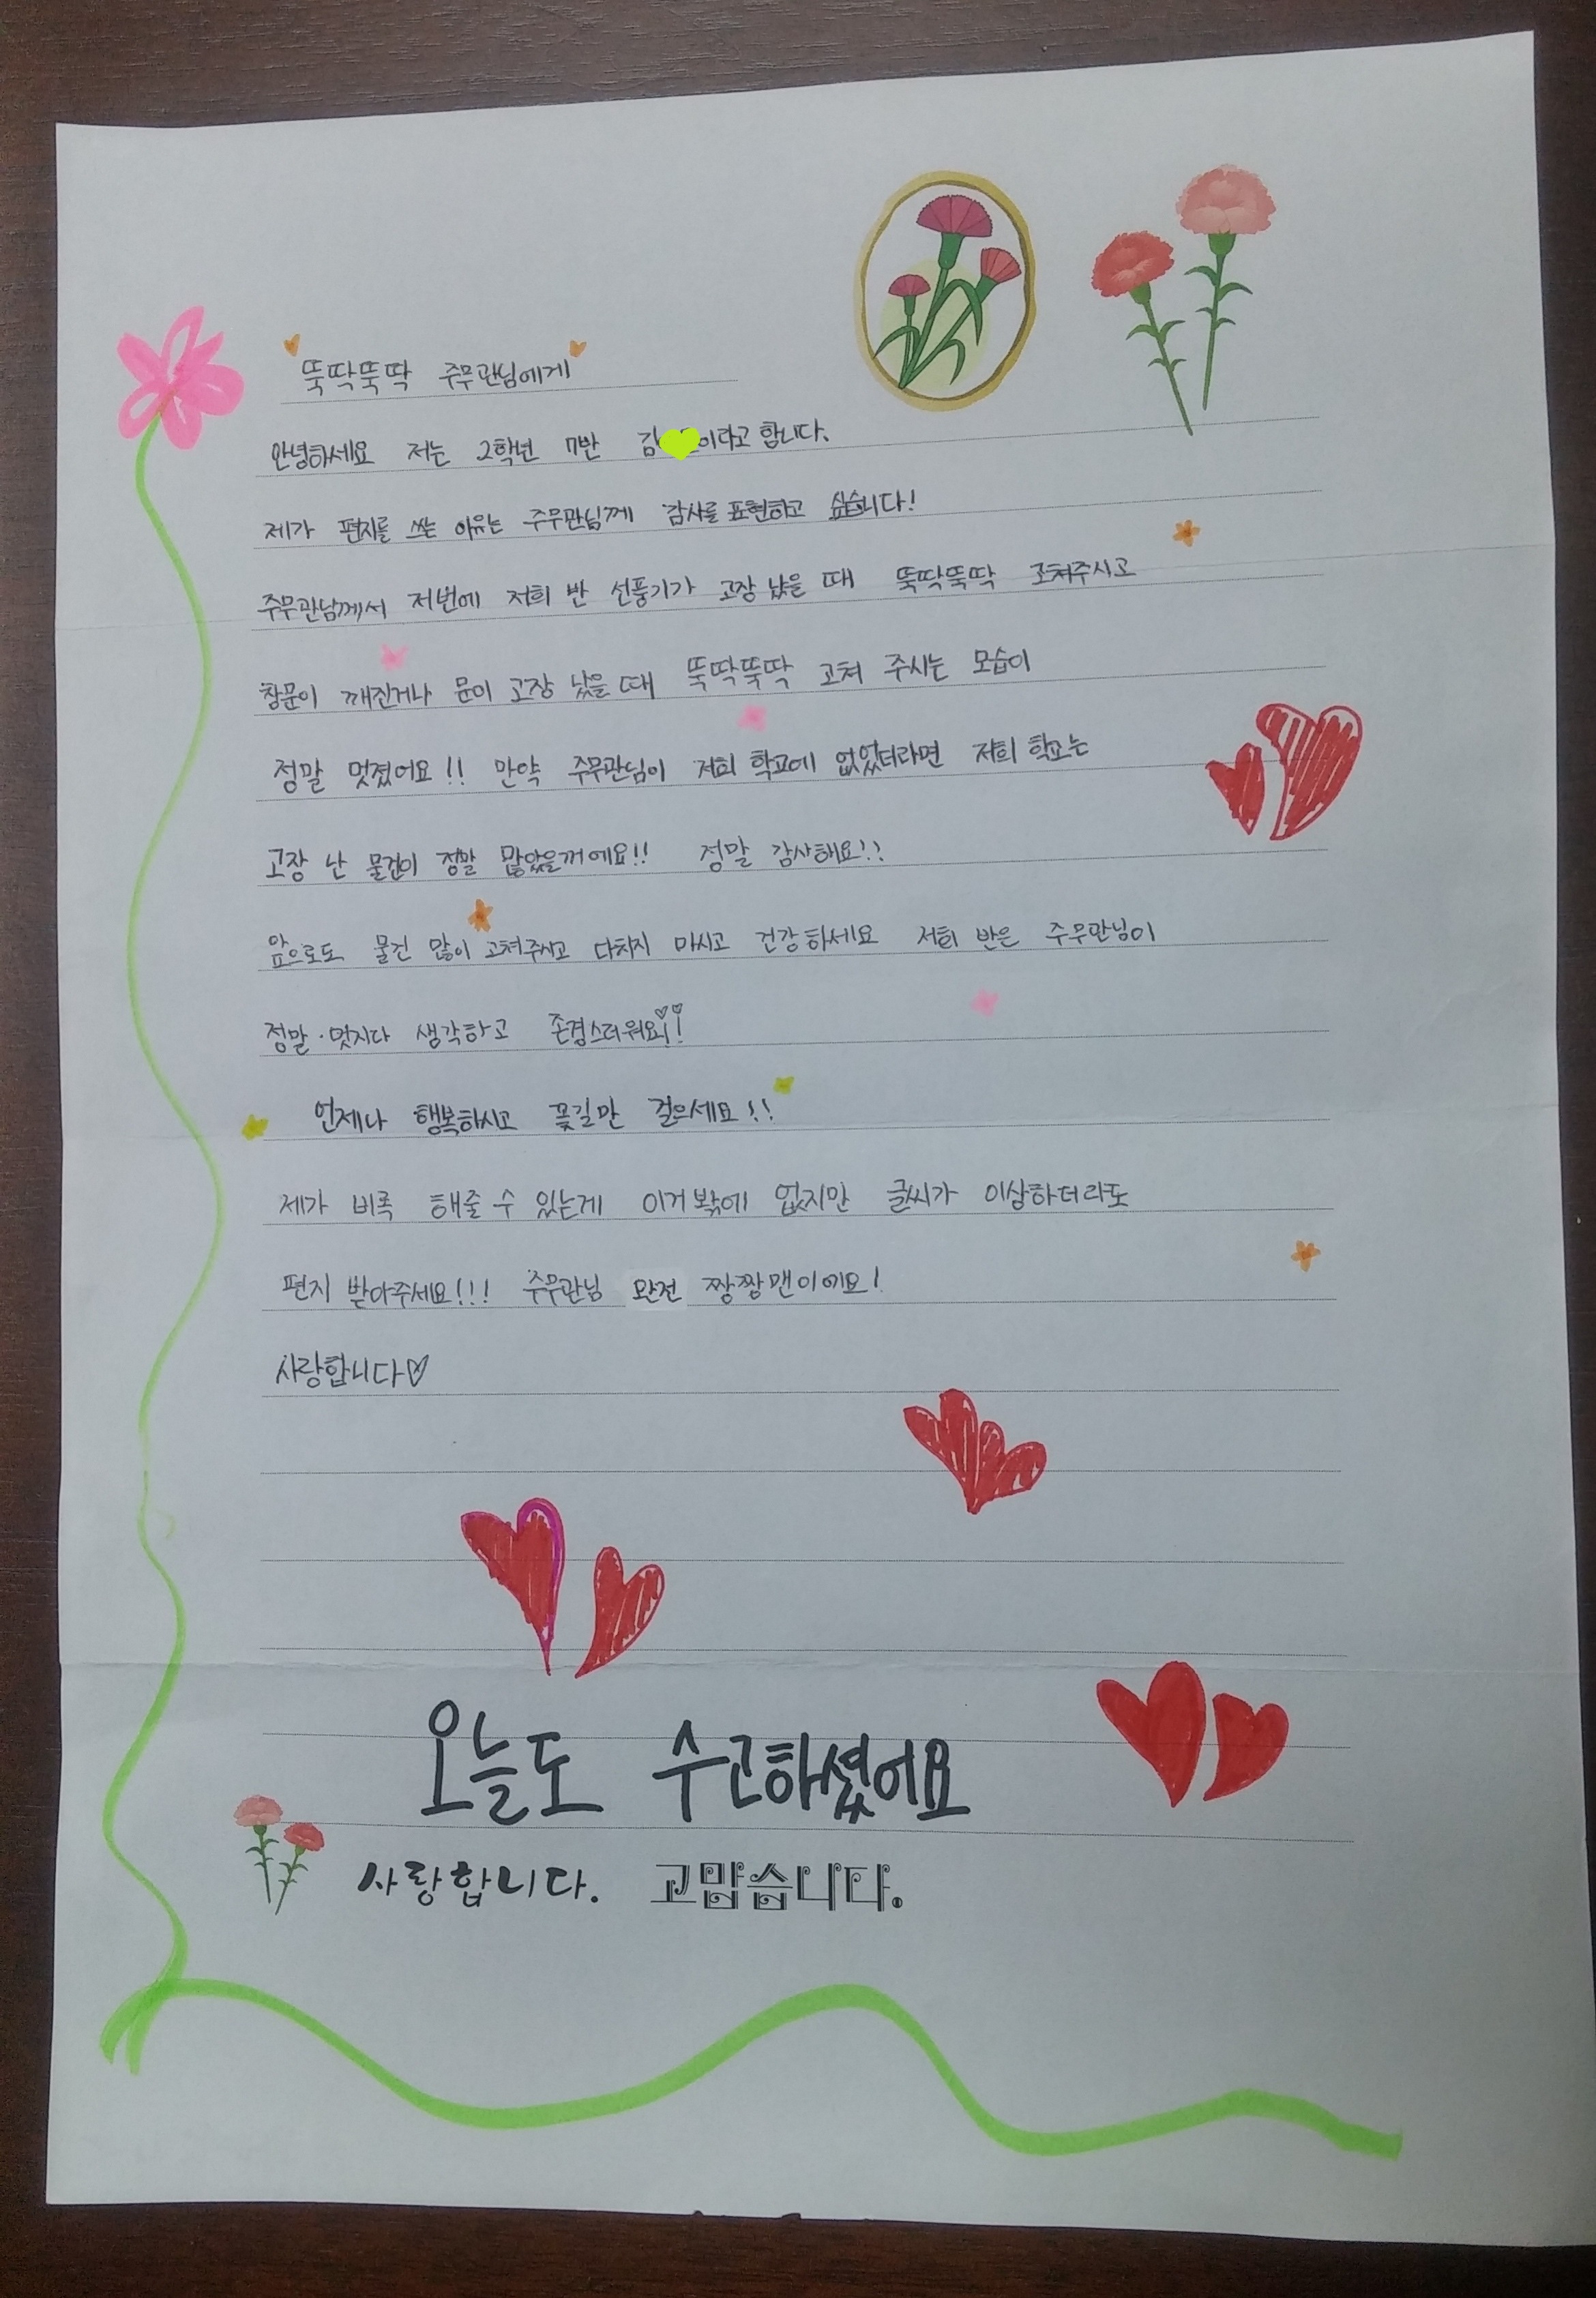 뚝딱뚝딱 주무관님에게
안녕하세요 저는 2학년 7반 김 이라고 합니다.
제가 편지를 쓰는 이유는 주무관님께 감사를 표현하고 싶습니다!
주무관님께서 저번에 저희 반 선풍기가 고장 났을 때 뚝딱뚝딱 고쳐주시고
창문이 깨진거나 문이 고장 났을 때 뚝딱뚝딱 고쳐 주시는 모습이
정말 멋졌어요!! 만약 주무관님이 저희 학교에 없었더라면 저희 학교는
고장 난 물건이 정말 많았을꺼에요!! 정말 감사해요!!
앞으로도 물건 많이 고쳐주시고 다치지 마시고 건강하세요 저희 반은 주무관님이
정말 멋지다 생각하고 존경스러워요!!
언제나 행복하시고 꽃길만 걸으세요!!
제가 비록 해줄 수 있는게 이거 밖에 없지만 글씨가 이상하더라도
편지 받아주세요!!! 주무관님 완전 짱짱맨이에요!
사랑합니다♡
오늘도 수고하셨어요
사랑합니다. 고맙습니다.